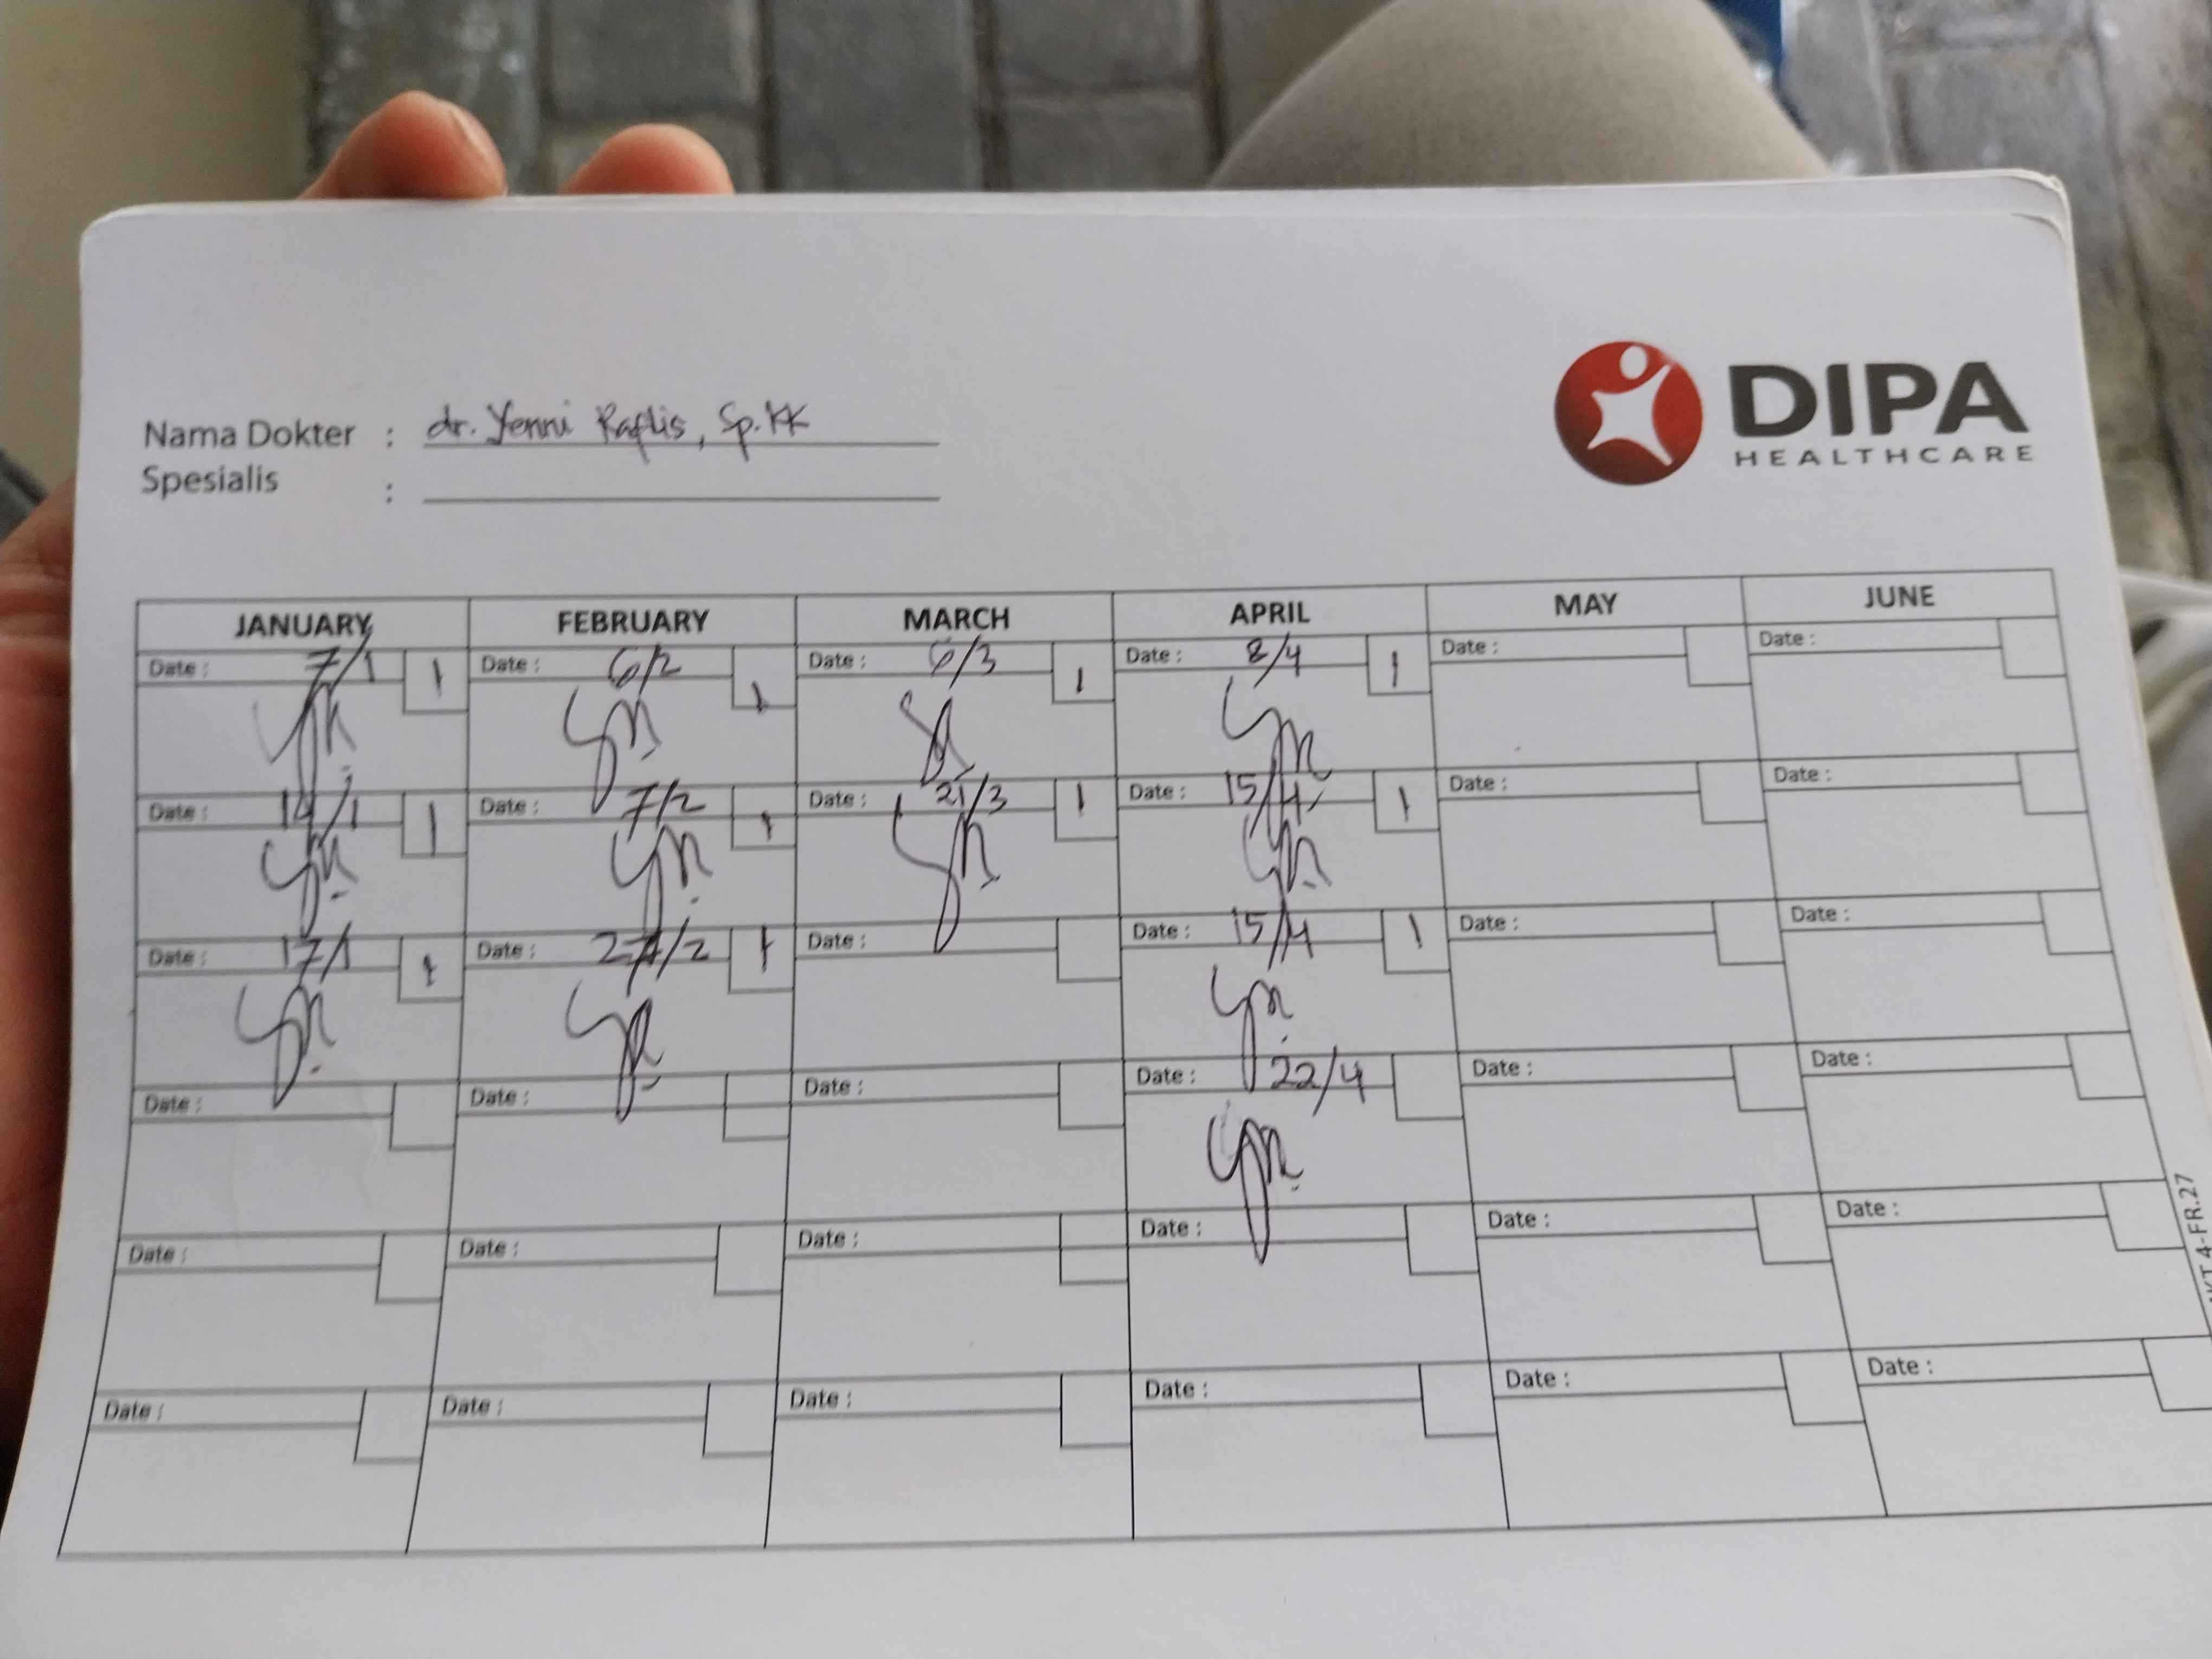 DIPA
HEALTHCARE
Nama Dokter : dr. Yenni Raflis, Sp.KK
Spesialis :
JANUARY FEBRUARY MARCH APRIL MAY JUNE
Date : 7/1 1 Date : 6/2 1 Date : 6/3 1 Date : 8/4 1 Date : Date :
Date : 14/1 1 Date : 7/2 1 Date : 21/3 1 Date : 15/4 1 Date : Date :
Date : 17/1 1 Date : 27/2 1 Date : Date : 15/4 1 Date : Date :
Date : Date : Date : Date : 22/4 Date : Date :
Date : Date : Date : Date : Date : Date :
Date : Date : Date : Date : Date : Date :
4-FR.27